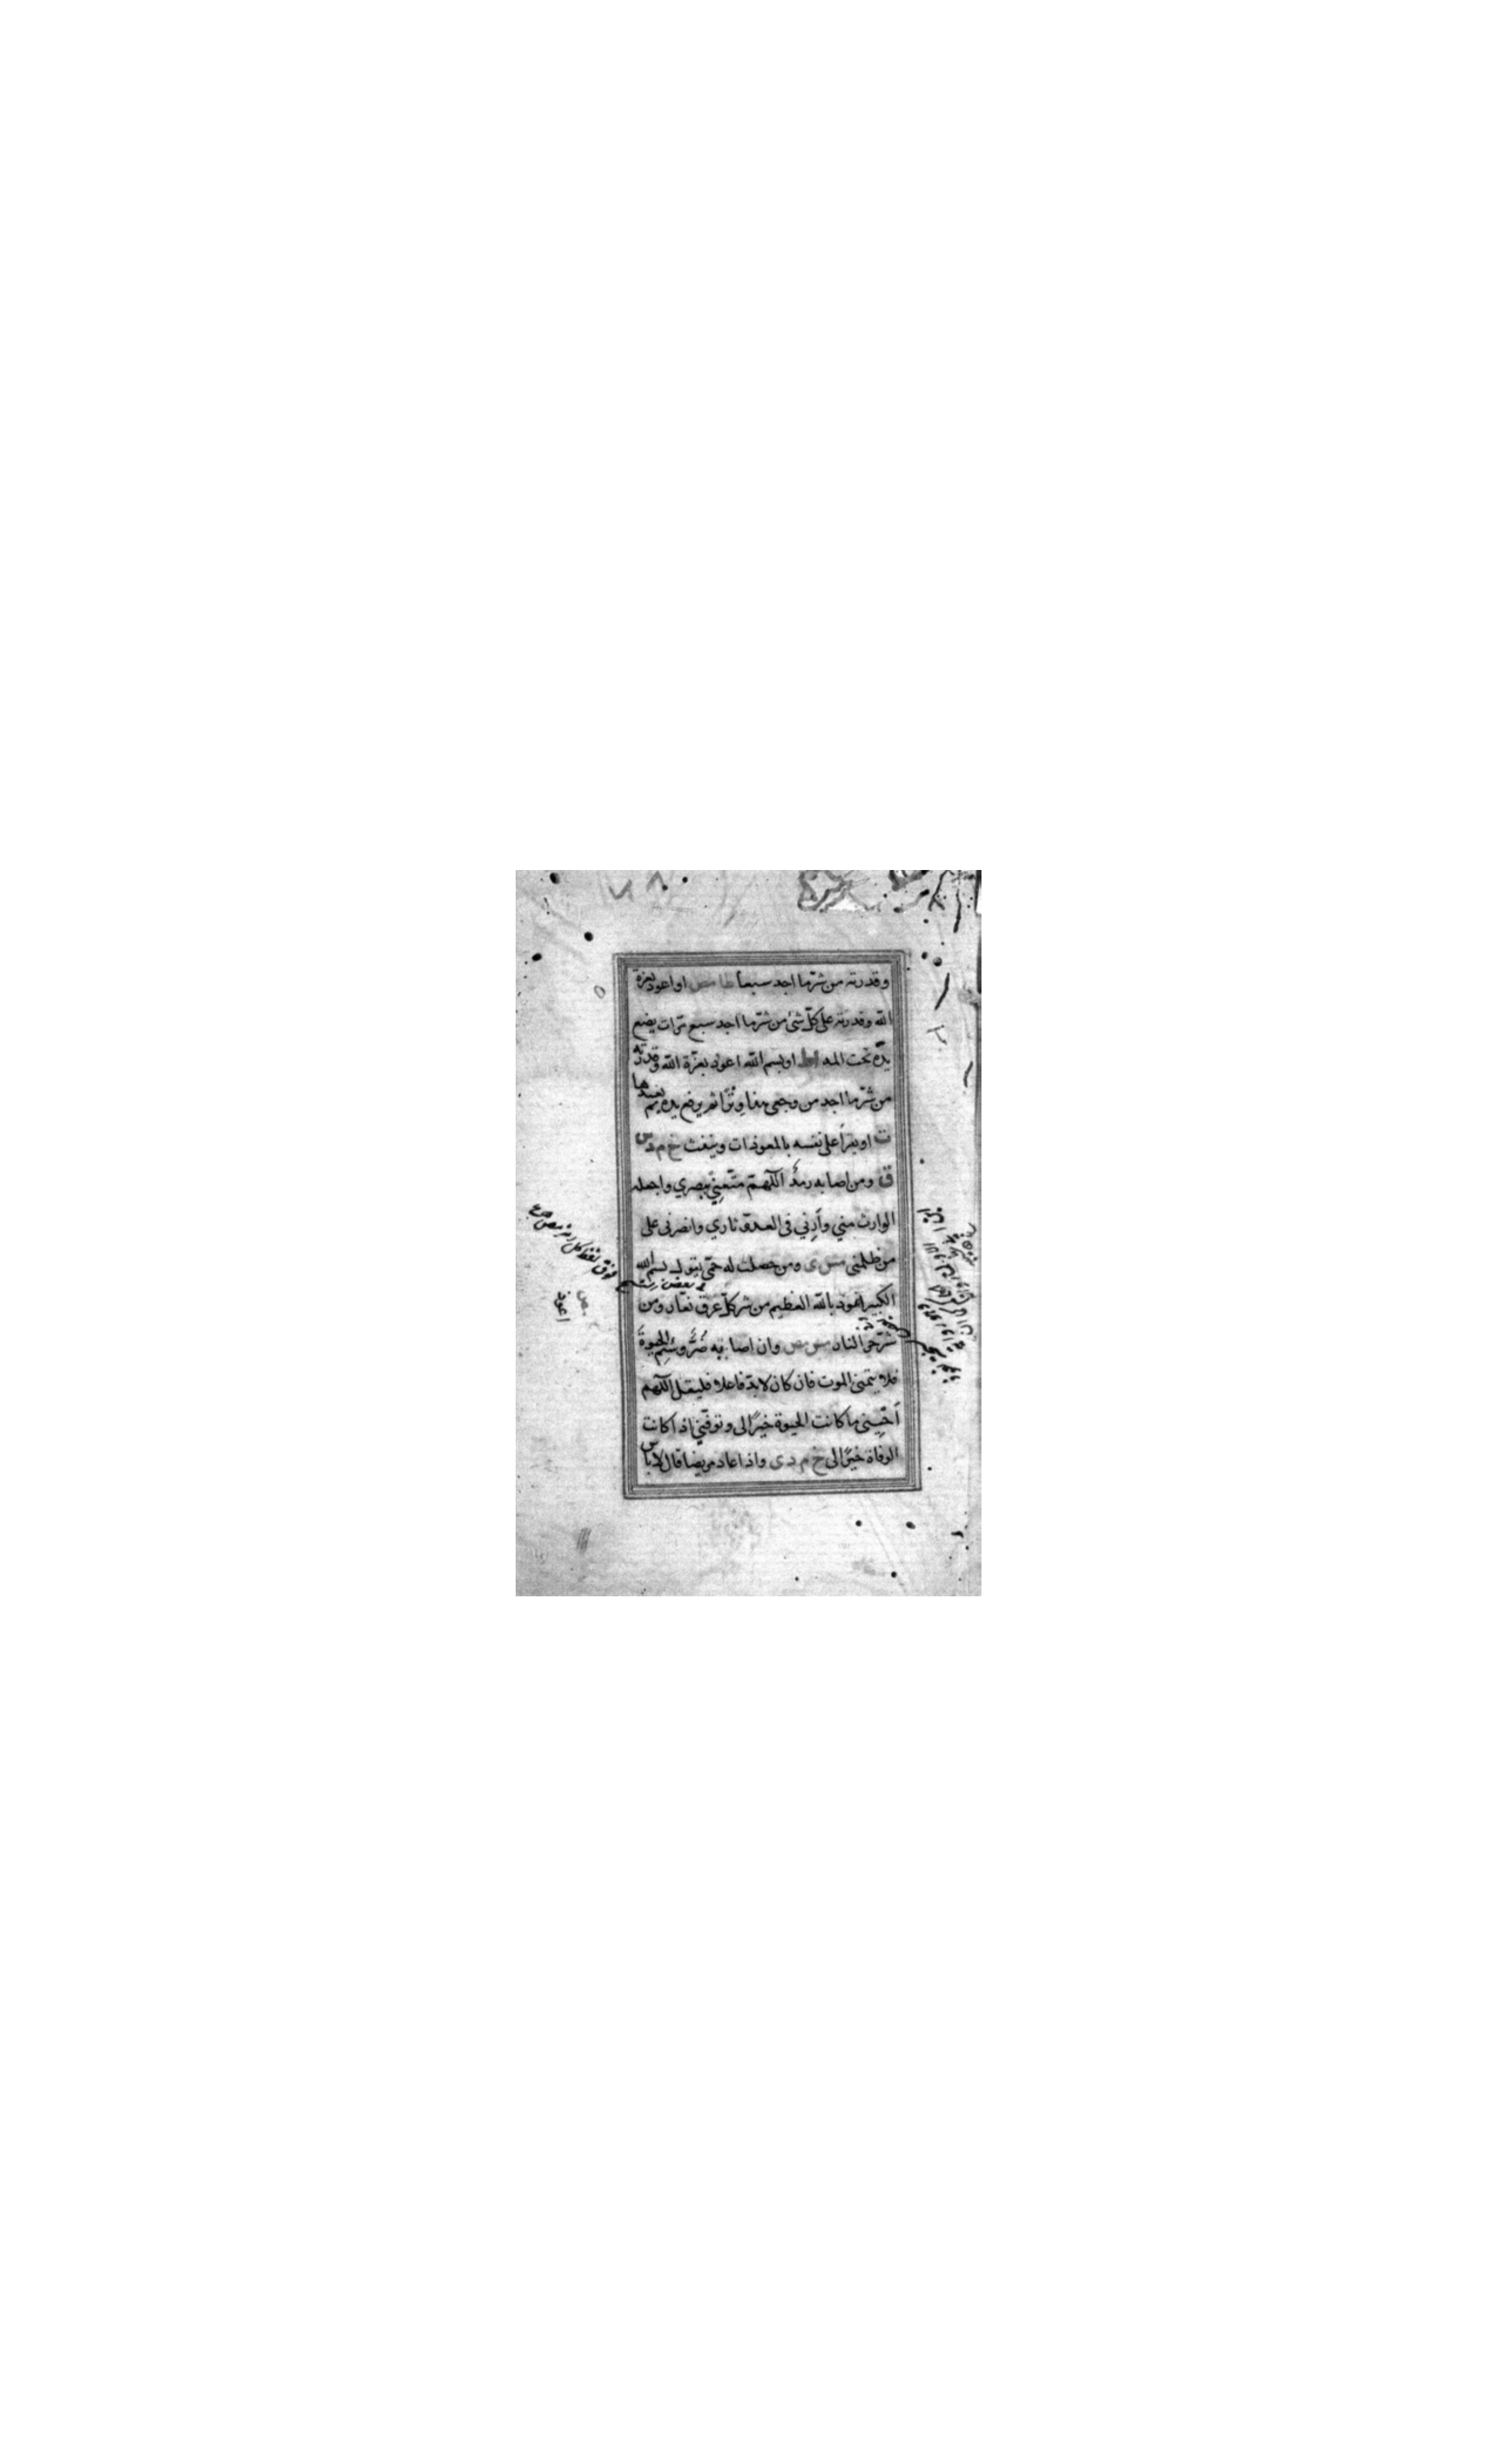 وقدرته من شرّ ما اجد سبعا طا مص او اعوذ بعزة
الله وقدرته على كلّ شئ من شرّ ما اجد سبع مرّات يضع
يده تحت المه ا ط او بسم الله اعوذ بعزّة الله وقدرته
من شرّ ما اجد من وجعى هذا وِترًا ثم يرفع يده ثم يعيدها
ت او يقرأ على نفسه بالمعوذات وينفث خ م د س
ق ومن اصابه رمدٌ اللّهمّ متّعني ببصري واجعله
الوارث مني وأرني فى العدوّ ثاري وانصرنى على
من ظلمنى مس ى ومن حصلت له حمّى يقول بسم الله
الكبير نعوذ بالله العظيم من شر كلّ عرق نعّار ومن
شرّ حرّ النار مس مص وان اصابه ضُرٌّ وسَئِم الحيوة
فلا يتمنى الموت فان كان لابدّ فاعلا فليقل اللّهم
أحْيِني ما كانت الحيوة خيرًا لى وتوفّني اذا كانت
الوفاة خيرًا لى خ م د ى واذا عاد مريضا قال لا باس
مص
اعوذ